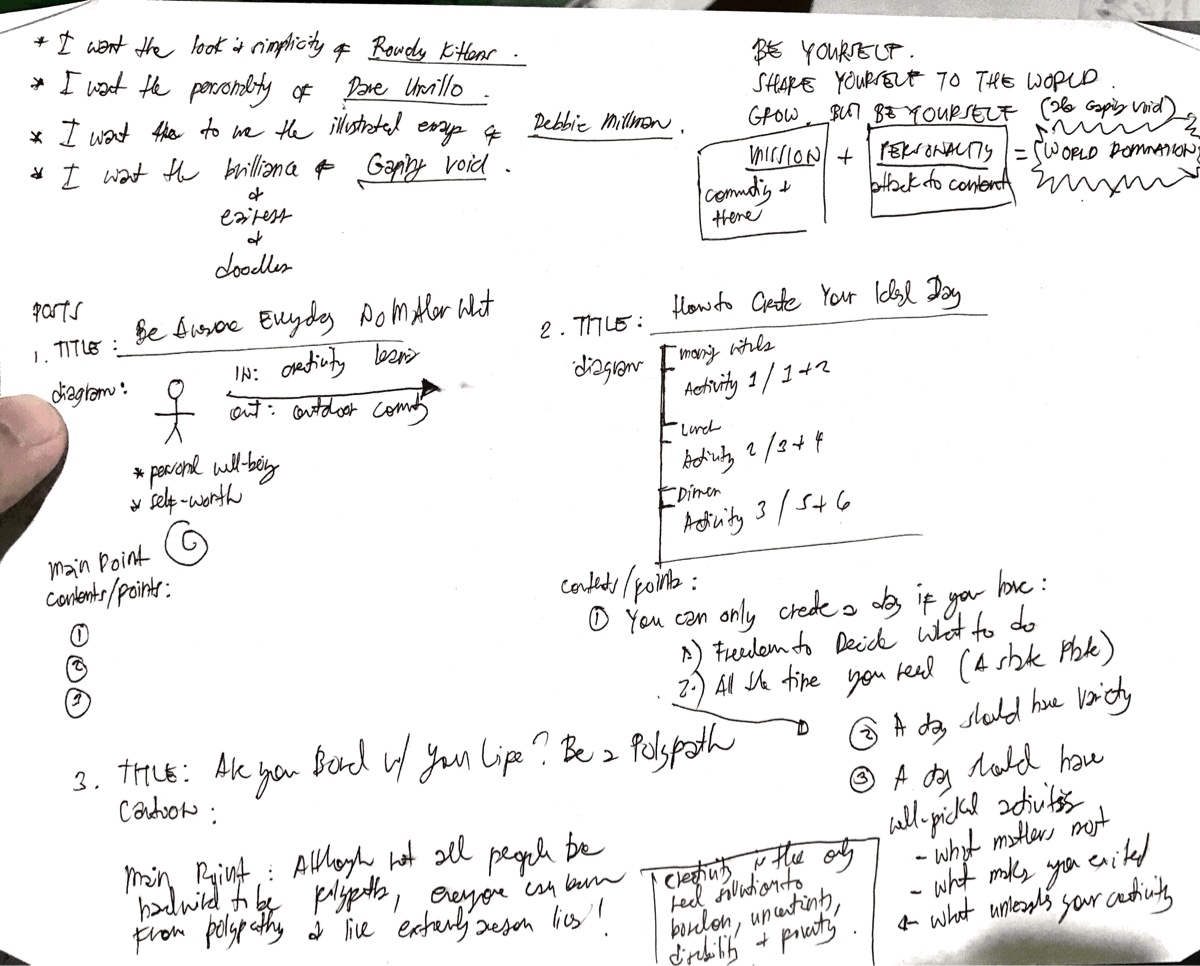 * I want the look & simplicity of Rowdy Kittens.
* I want the personality of Dave Ursillo.
* I want then to use the illustrated essays of Debbie Millman.
* I want the brilliance of Gaping Void.
&
&
doodles
BE YOURSELF.
SHARE YOURSELF TO THE WORLD.
GROW. BUT BE YOURSELF (ala Gaping Void)
MISSION + PERSONALITY = WORLD DOMINATION
community + theme
attack to content
POSTS
1. TITLE: Be Awesome Everyday No Matter What
diagram:
IN: creativity learning
out: outdoor community
* personal well-being
* self-worth
Main Point
contents/points:
①
②
③
2. TITLE: How to Create Your Ideal Day
diagram
morning rituals
Activity 1 / 1+2
Lunch
Activity 2 / 3+4
Dinner
Activity 3 / 5+6
contents/points:
① You can only create a day if you have:
A) Freedom to Decide What to do
2.) All the time you need (A state)
② A day should have variety
③ A day should have
well-picked activities
- what matters most
- what makes you excited
- what unleashes your creativity
3. TITLE: Are you Bored w/ Your Life? Be a Polypath
Cartoon:
Main Point: Although not all people be
hardwired to be polypaths, everyone can learn
from polypaths & live extremely awesome lives!
Creativity is the only
real solution to
boredom, uncertainty,
disability & poverty.